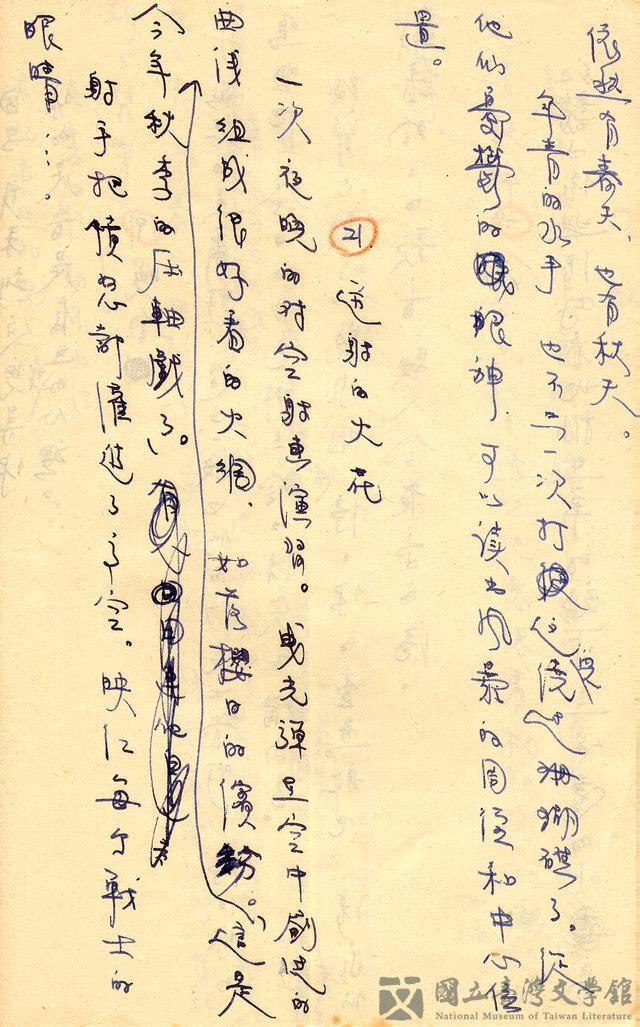 依然有春天，也有秋天。
年青的水手 也不只一次打這 繞過珊瑚礁了。從
他们憂鬱的眼神 可以读出风暴的周徑和中心位
置。
21 逆射的火花
一次夜晚的对空射击演習。曳光弹在空中劃过的
曲线组成很好看的火網，如落櫻日的繽紛。這是
今年秋季的压軸戲了。
射手把憤怒都灌进了夜空。映红每个戰士的
眼睛…。
國立臺灣文學館
National Museum of Taiwan Literature